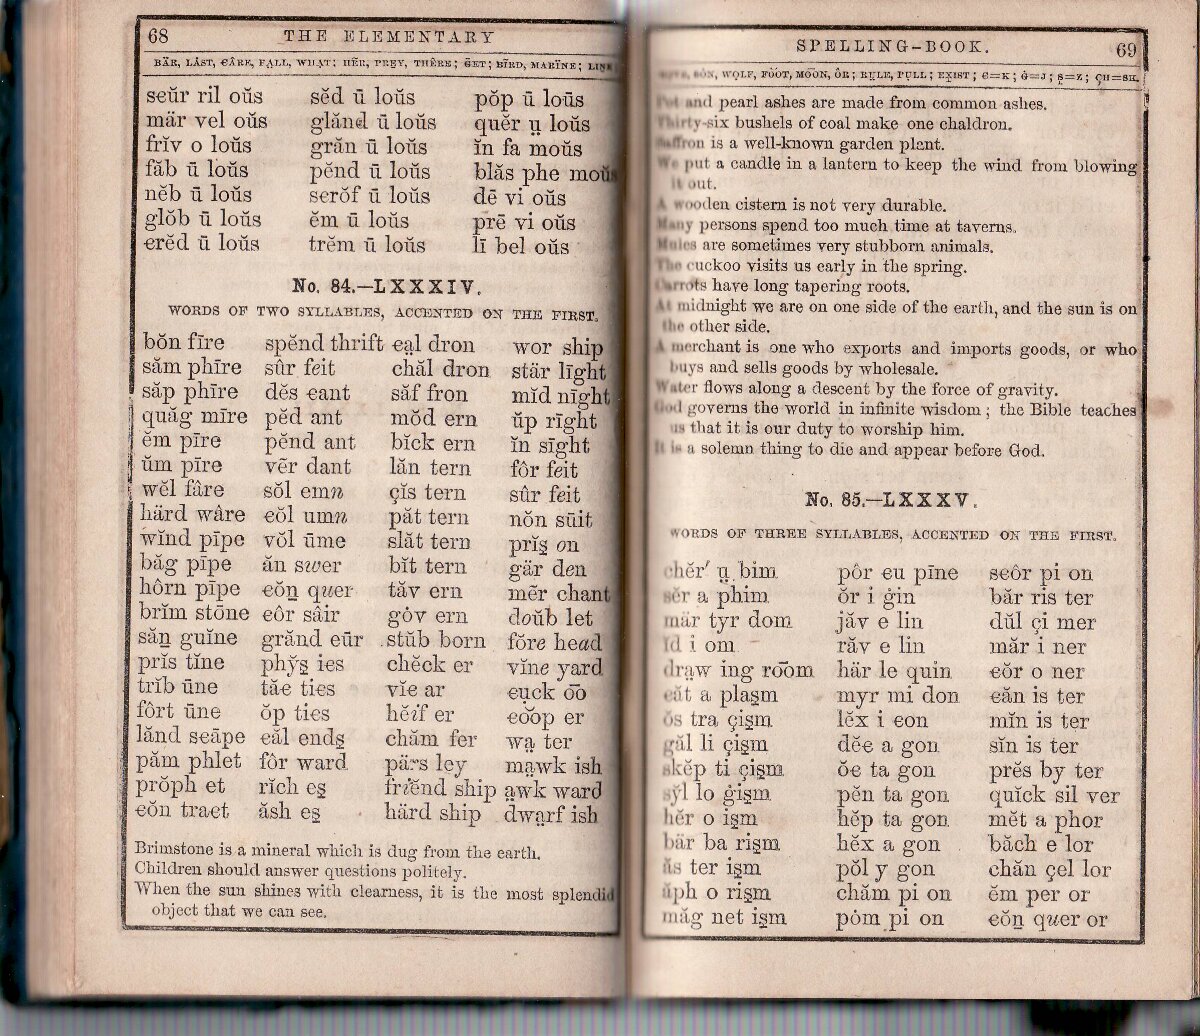 68 THE ELEMENTARY
BÄR, LÅST, ꞒÂRE, FA̤LL, WHA̤T; HẼR, PRE̱Y, THÊRE; ḠET; BĨRD, MARÏNE;
seŭr ril oŭs sĕd ū loŭs pŏp ū loŭs
mär vel oŭs glănd ū loŭs quĕr ṳ loŭs
frĭv o loŭs grăn ū loŭs ĭn fa moŭs
făb ū loŭs pĕnd ū loŭs blăs phe moŭs
nĕb ū loŭs serŏf ū loŭs dē vi oŭs
glŏb ū loŭs ĕm ū loŭs prē vi oŭs
ꞓrĕd ū loŭs trĕm ū loŭs lī bel oŭs
No. 84.—LXXXIV.
WORDS OF TWO SYLLABLES, ACCENTED ON THE FIRST.
bŏn fīre spĕnd thrift ꞓa̤l dron wor ship
săm phīre sûr feit chăl dron stär līght
săp phīre dĕs ꞓant săf fron mĭd nīght
quăg mīre pĕd ant mŏd ern ŭp rīght
ĕm pīre pĕnd ant bĭck ern ĭn sīght
ŭm pīre vẽr dant lăn tern fôr feit
wĕl fâre sŏl emn çĭs tern sûr feit
härd wâre ꞓŏl umn păt tern nŏn sūit
wĭnd pīpe vŏl ūme slăt tern prĭs̱ on
băg pīpe ăn swer bĭt tern gär den
hôrn pīpe ꞓŏṉ quer tăv ern mẽr chant
brĭm stōne ꞓôr sâir gȯv ern doŭb let
săṉ guĭne grănd eūr stŭb born fōre head
prĭs tĭne phy̆s̱ ies chĕck er vĭne yard
trĭb ūne tăꞓ ties vĭꞓ ar ꞓu̱ck o͞o
fôrt ūne ŏp ties hĕif er ꞓo͝op er
lănd sꞓāpe ꞓăl ends̱ chăm fer wa̤ ter
păm phlet fôr ward pärs ley ma̤wk ish
prŏph et rĭch es̱ friĕnd ship a̤wk ward
ꞓŏn traꞓt ăsh es̱ härd ship dwa̤rf ish
Brimstone is a mineral which is dug from the earth.
Children should answer questions politely.
When the sun shines with clearness, it is the most splendid
object that we can see.
SPELLING-BOOK. 69
SȮN, WO̱LF, FO͝OT, MO͞ON, ÔR; RṲLE, PU̱LL; EX̱IST; Ꞓ=K; Ġ=J; S̱=Z; ÇH=SH.
Pot and pearl ashes are made from common ashes.
Thirty-six bushels of coal make one chaldron.
Saffron is a well-known garden plant.
We put a candle in a lantern to keep the wind from blowing
it out.
A wooden cistern is not very durable.
Many persons spend too much time at taverns.
Mules are sometimes very stubborn animals.
The cuckoo visits us early in the spring.
Carrots have long tapering roots.
At midnight we are on one side of the earth, and the sun is on
the other side.
A merchant is one who exports and imports goods, or who
buys and sells goods by wholesale.
Water flows along a descent by the force of gravity.
God governs the world in infinite wisdom; the Bible teaches
us that it is our duty to worship him.
It is a solemn thing to die and appear before God.
No. 85.—LXXXV.
WORDS OF THREE SYLLABLES, ACCENTED ON THE FIRST.
chĕr′ ṳ bim pôr ꞓu pīne sꞓôr pi on
sĕr a phim ŏr i ġin băr ris ter
mär tyr dom jăv e lin dŭl çi mer
ĭd i om răv e lin măr i ner
dra̤w ing ro͞om här le quin ꞓŏr o ner
ꞓăt a plas̱m myr mi don ꞓăn is ter
ŏs tra çis̱m lĕx i ꞓon mĭn is ter
găl li çis̱m dĕꞓ a gon sĭn is ter
skĕp ti çis̱m ŏꞓ ta gon prĕs by ter
sy̆l lo ġis̱m pĕn ta gon quĭck sil ver
hĕr o is̱m hĕp ta gon mĕt a phor
bär ba ris̱m hĕx a gon băch e lor
ăs ter is̱m pŏl y gon chăn çel lor
ăph o ris̱m chăm pi on ĕm per or
măg net is̱m pȯm pi on ꞓŏṉ quer or